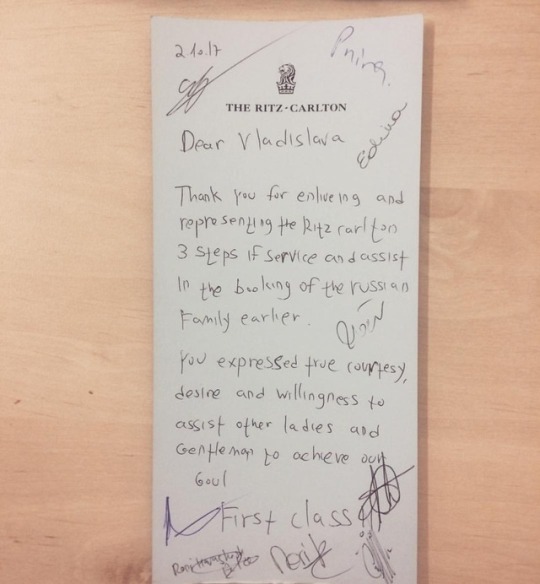 2.10.17
THE RITZ·CARLTON
Dear Vladislava
Edina
Thank you for enliveing and
representing the Ritz carlton
3 steps if service and assist
In the booking of the russian
Family earlier.
You expressed true courtesy,
desire and willingness to
assist other ladies and
Gentleman to achieve our
Goul
First class!